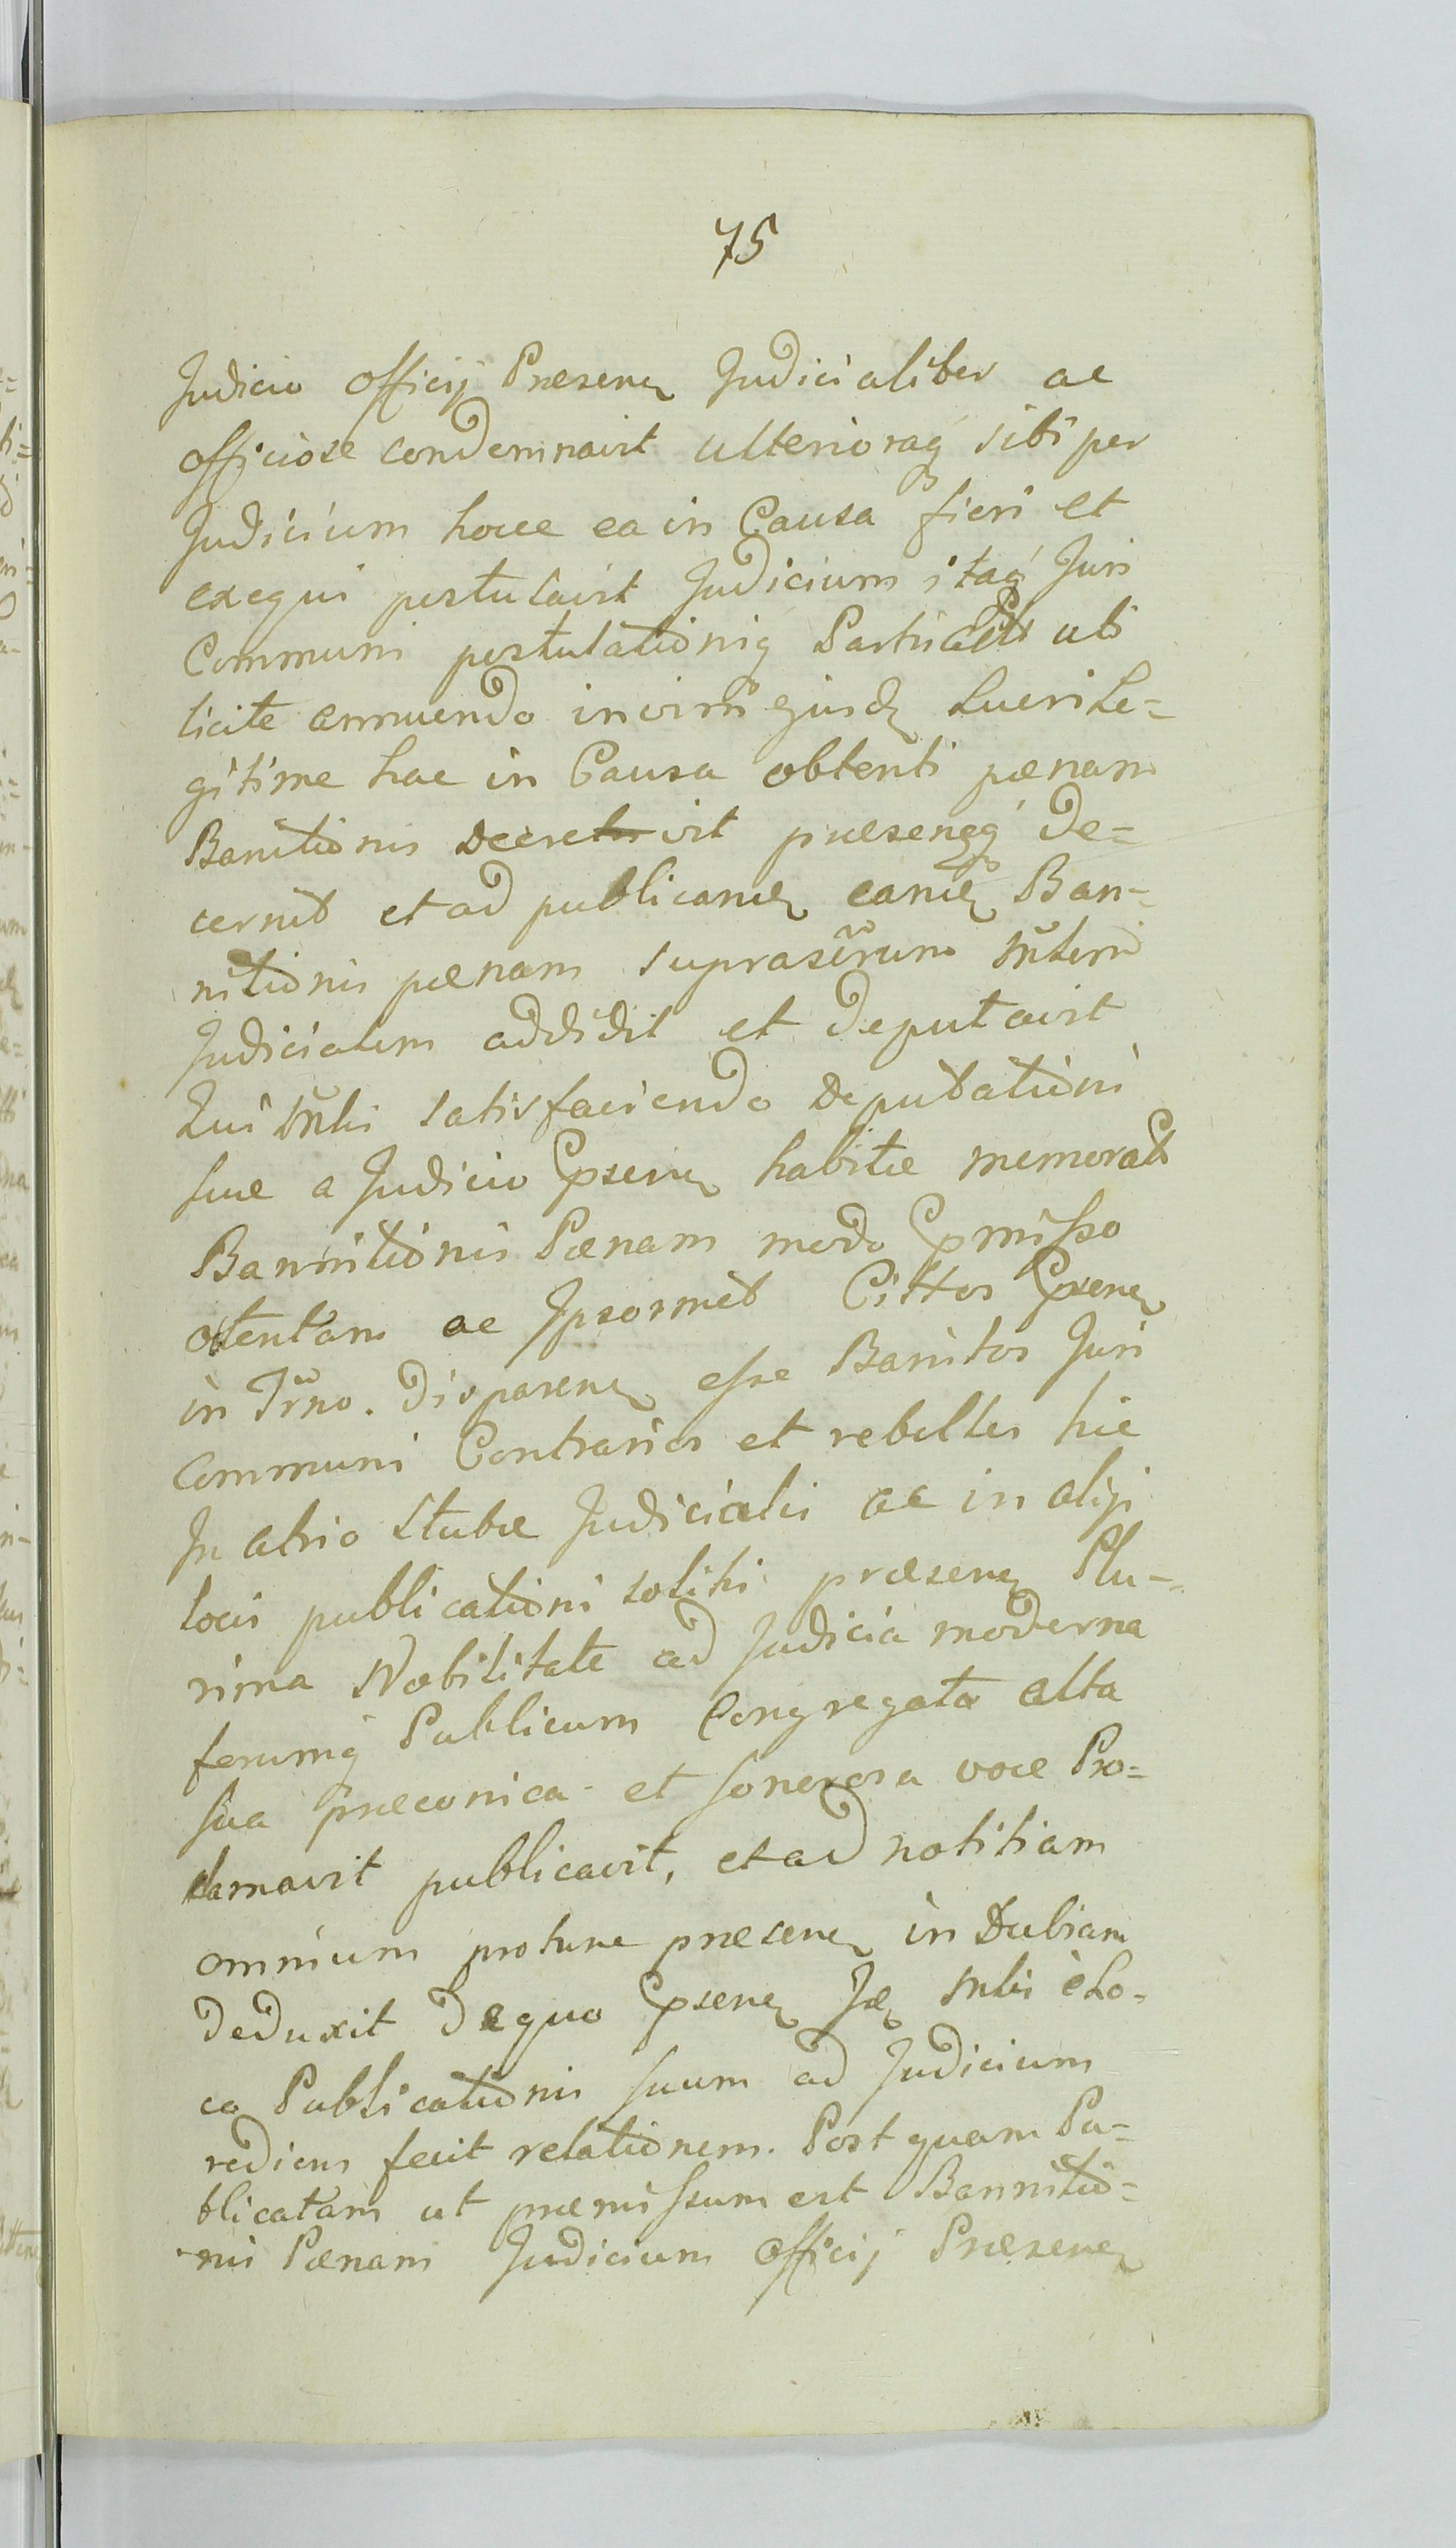 75
Judicio Officij Præsenȝ Judicialiter ac
officiose condemnavit ulterioraq́ sibi per
Judicium hocce ea in Causa fieri et
exequi postulavit Judicium itaq́ Juri
Communi postulationiq́ Partis uti
licite annuendo in vim ejusdȝ Lucri Le=
gitime hac in Causa obtenti pænam
Banitionis decrevit præsensq́ de=
cernit et ad publicanđ eanđ Ban-
nitionis pænam suprascr̃tum Mñlem
Judicialem addidit et deputavit
Qui Mñlis satisfaciendo deputationi
suæ a Judicio præsenȝ habitæ memorat
Bannitionis Pænam modo præmisso
obtentam ac Ipsosmet Cittos præsenȝ
in Tr̃no. disparenȝ esse Banitos Juri
Communi Contrarios et rebelles hic
In atrio Stubæ Judicialis ac in alijs
locis publicationi solitis præsenȝ Plu-
rima Nobilitate ad Judicia moderna
forumq́ Publicum Congregata alta
sua præconica et sonorosa voce Pro=
clamavit publicavit, et ad notitiam
omnium protunc præsenȝ in Dubiam
deduxit de quo præsenȝ Mñlis è Lo-
co Publicationis suum ad Judicium
rediens fecit relationem. Post quam Pu=
blicatam ut præmissum est Bannitio=
nis Pænam Judicium Officij Præsenȝ